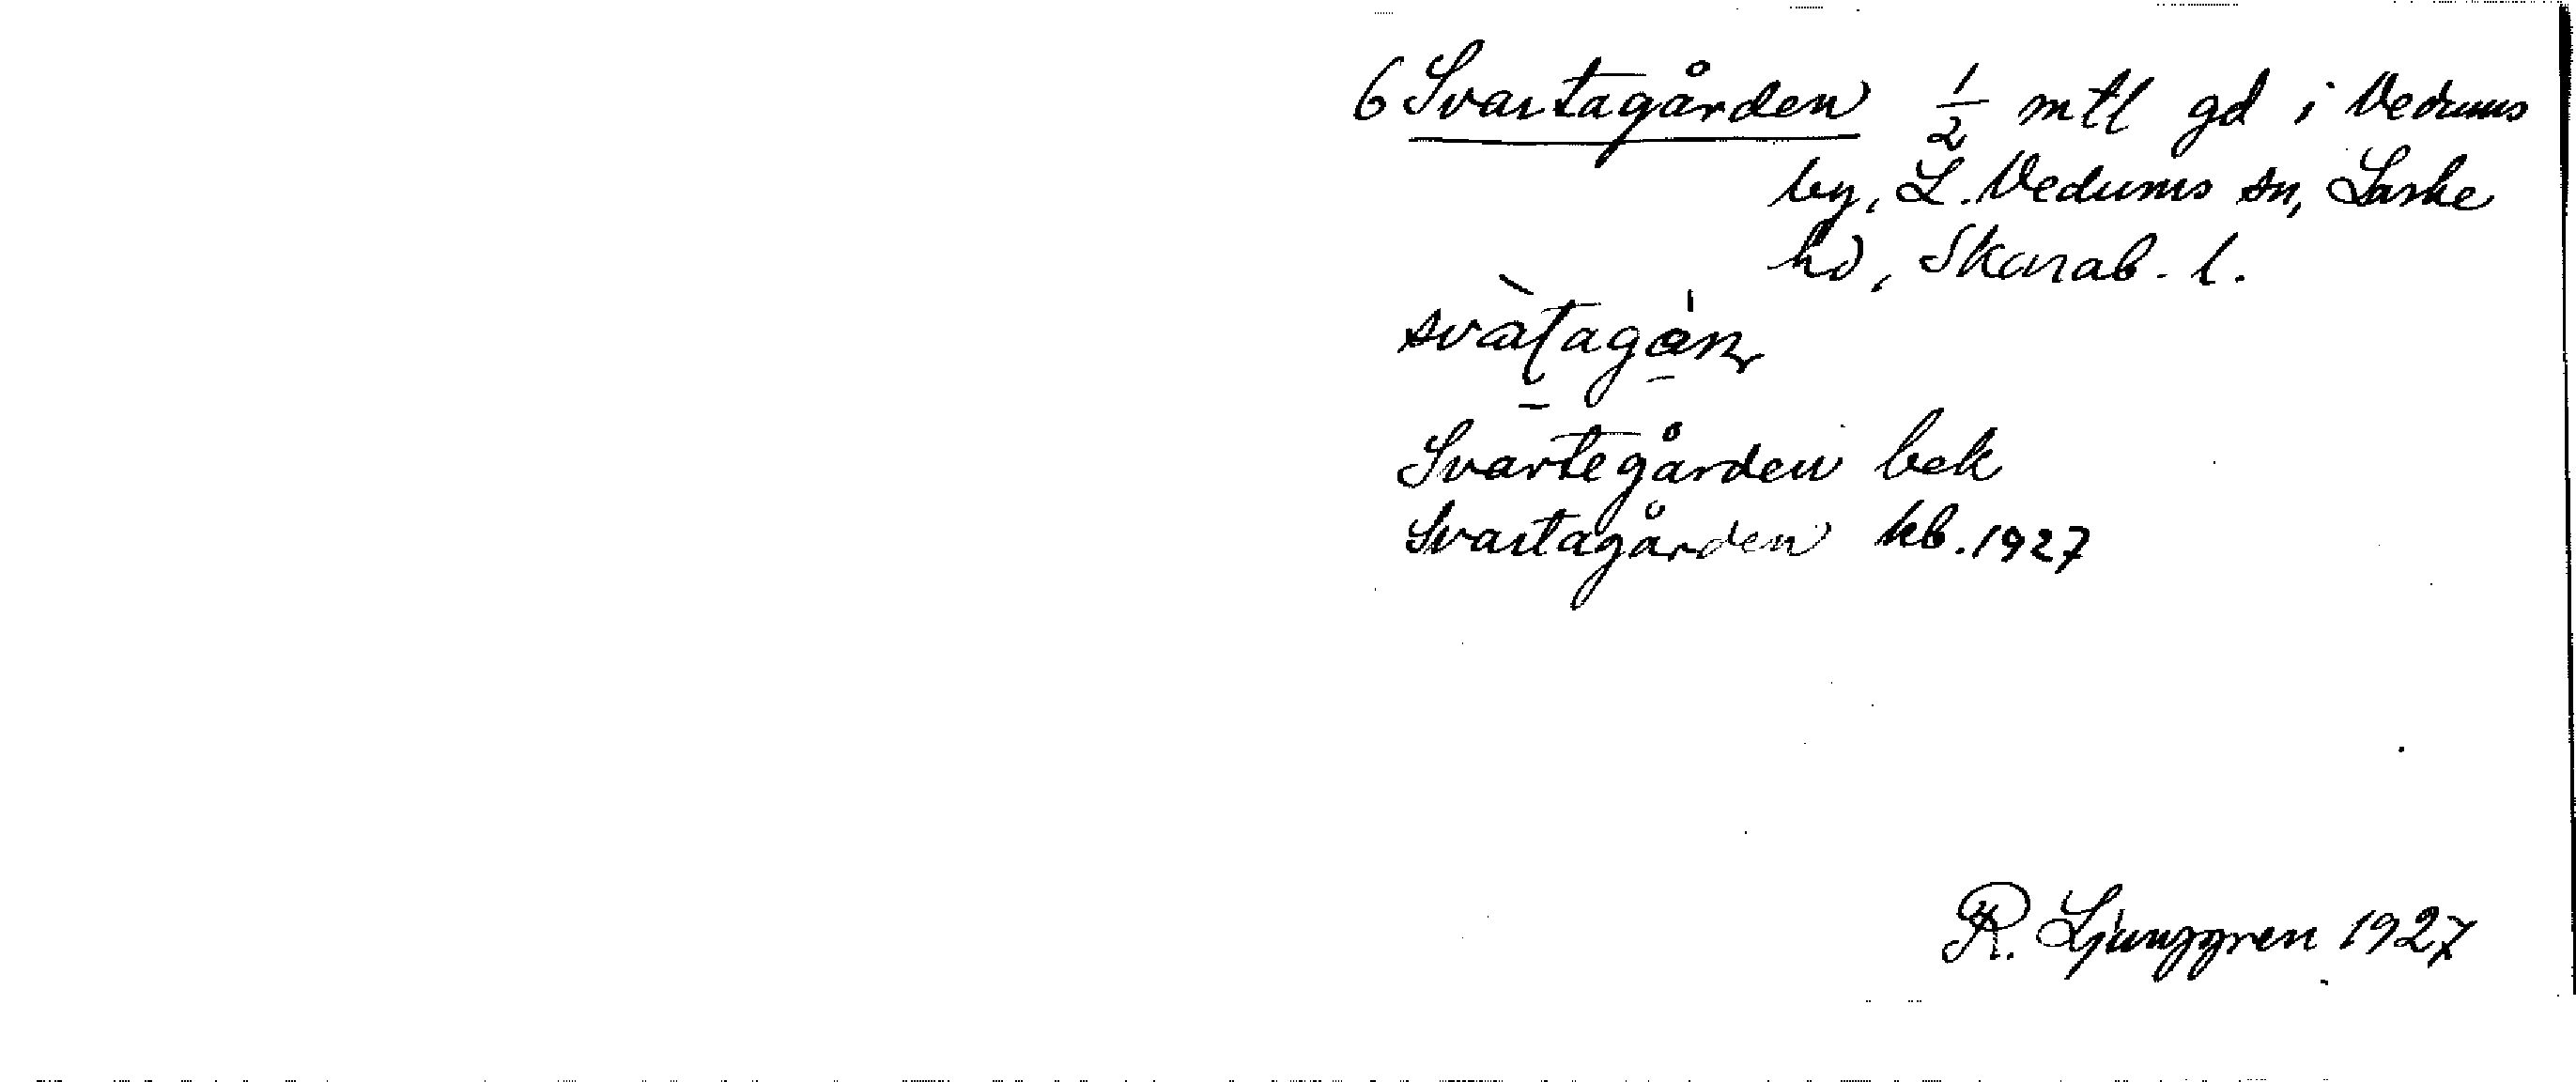 6 Svartagården 1/2 mtl gd i Vedums
by, L. Vedums sn, Laske
hd, Skarab. l.
svatagan
Svartegården bek
Svartagården kb. 1927
R. Ljunggren 1927